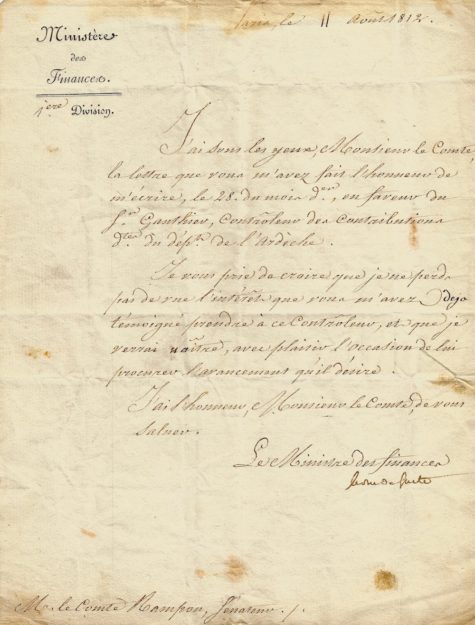 Paris, le 11 Août 1812.
Ministère
des
Finances.
1ère Division.
J'ai sous les yeux, Monsieur le Comte,
la lettre que vous m'avez fait l'honneur de
m'écrire, le 28. du mois der, en faveur du
Sr Gauthier, Contrôleur des Contributions
dtes du dépt de l'Ardèche.
Je vous prie de croire que je ne perds
pas de vue l'intérêt que vous m'avez déjà
témoigné prendre à ce Contrôleur, et que je
verrai naître, avec plaisir l'occasion de lui
procurer l'avancement qu'il désire.
J'ai l'honneur, Monsieur le Comte, de vous
saluer.
Le Ministre des finances
M. le Comte Rampon, Senateur